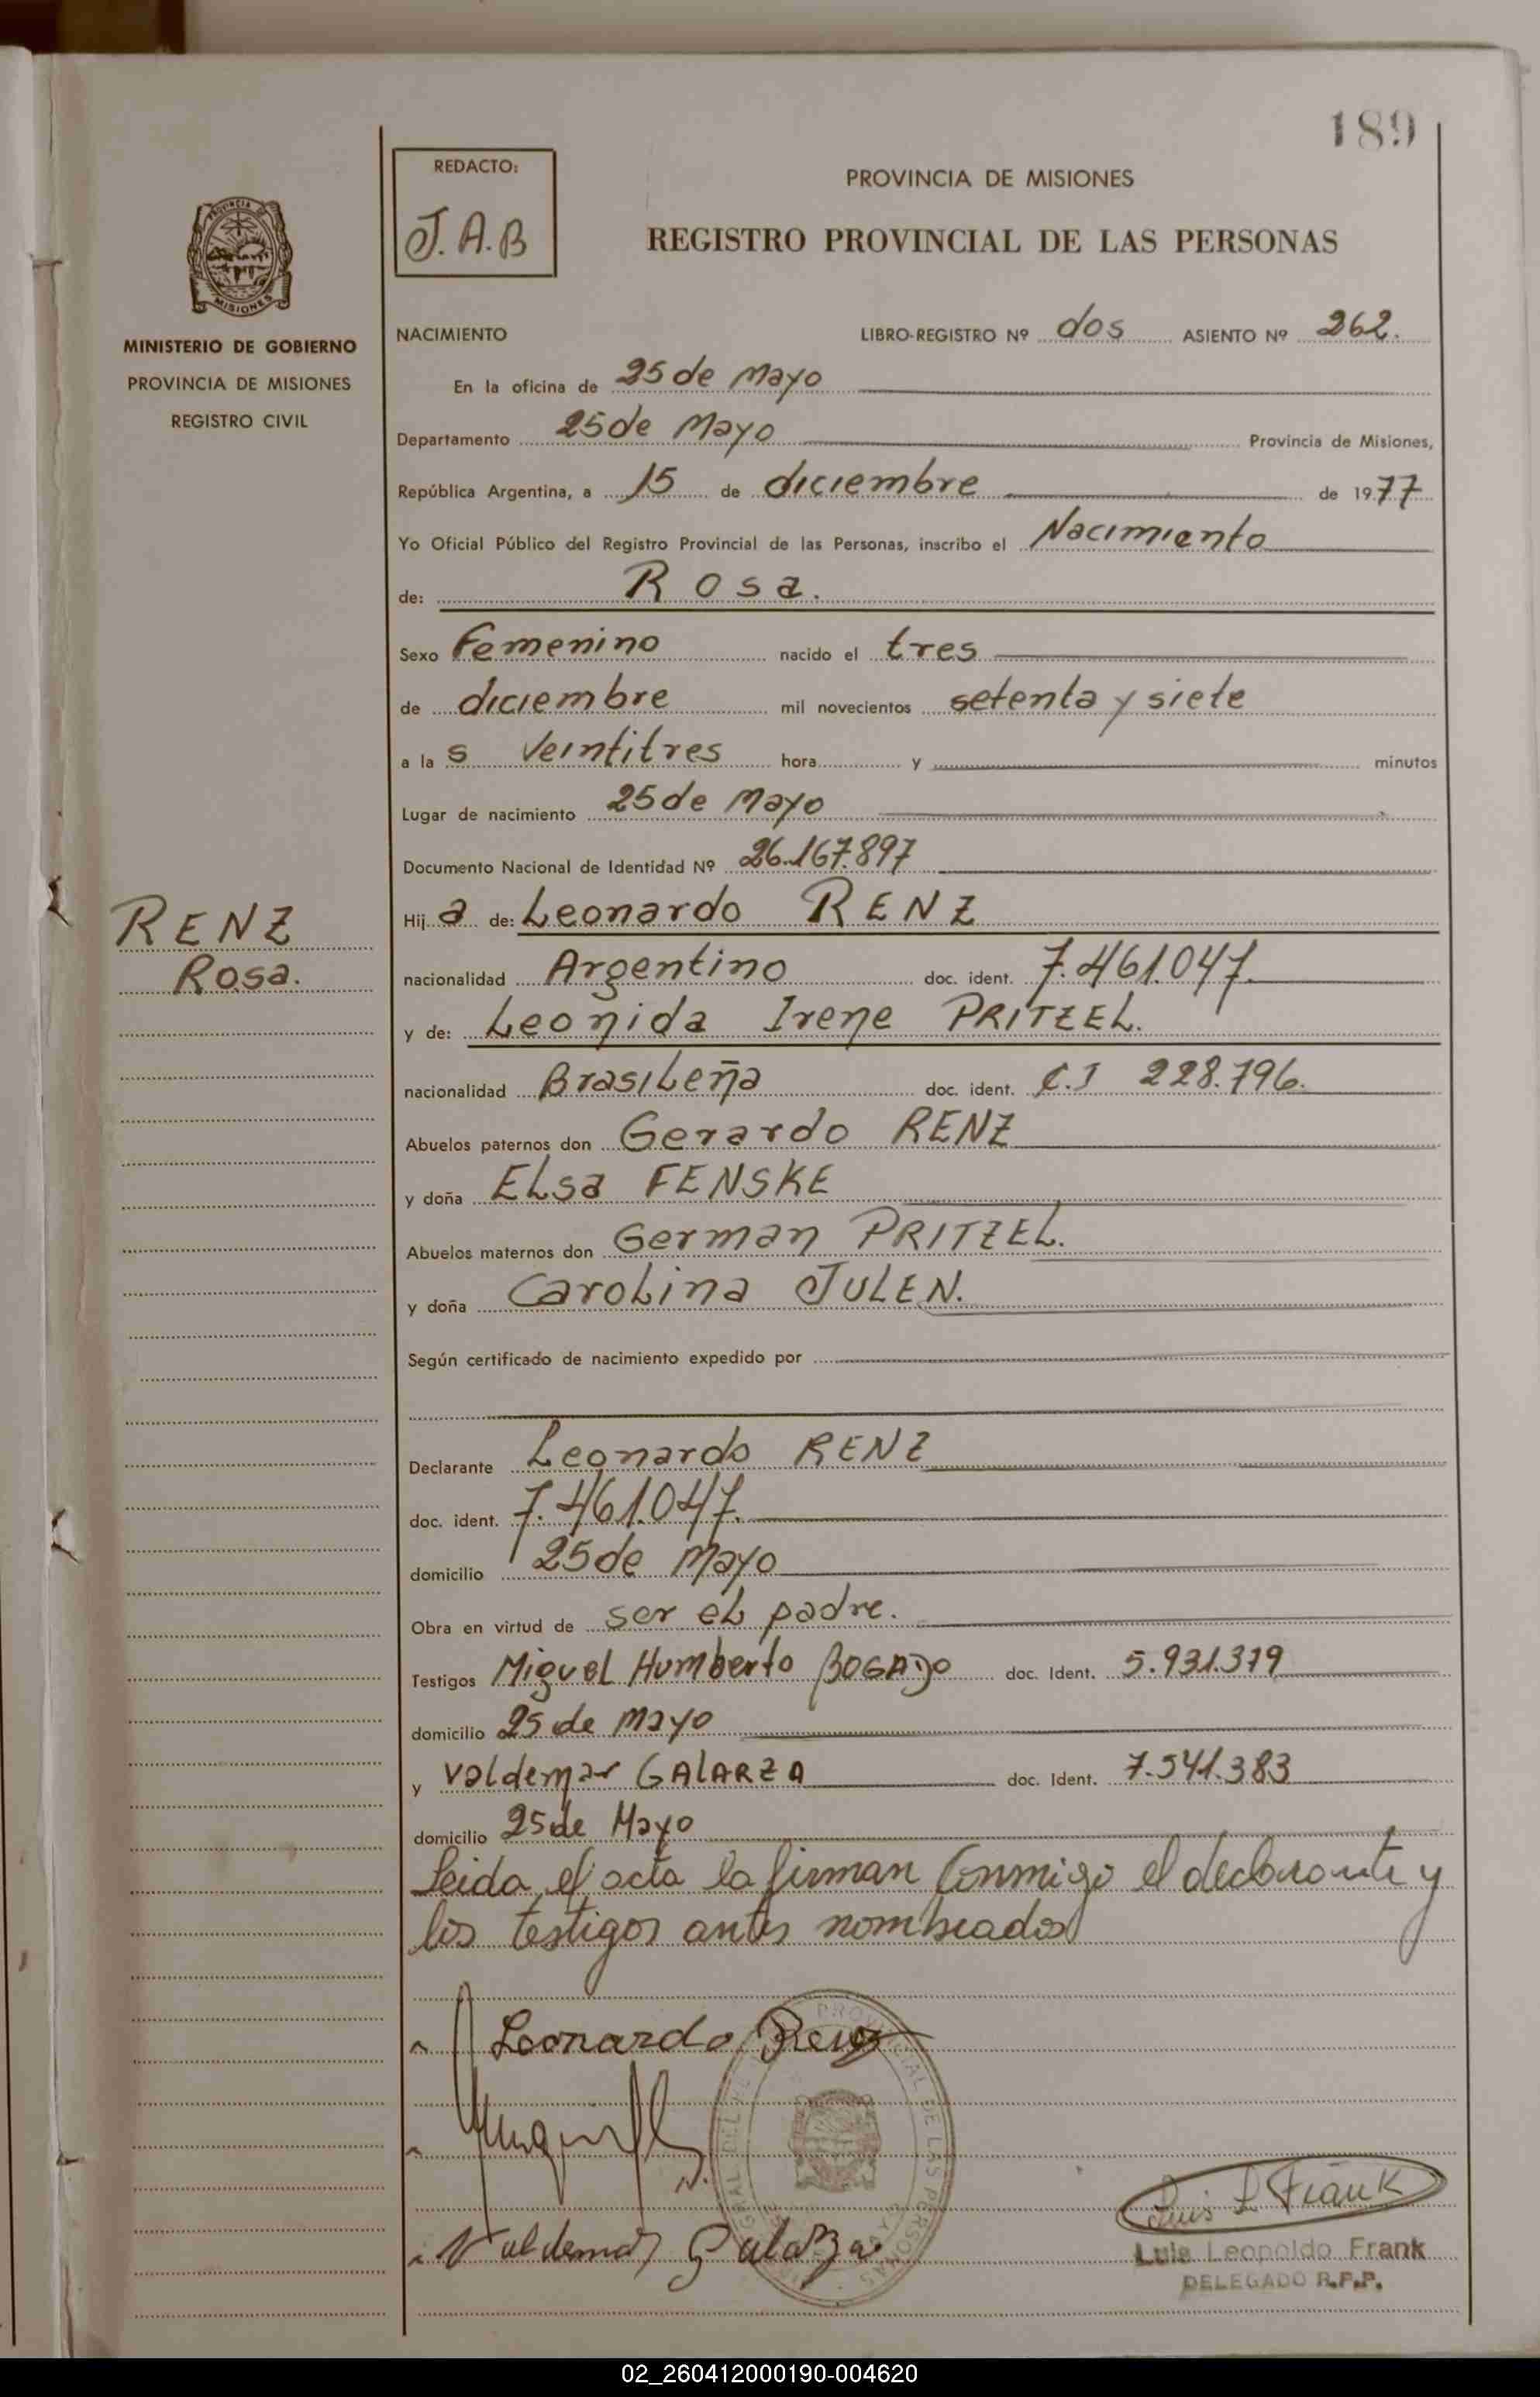 189
REDACTO:
J.A.B
PROVINCIA DE MISIONES
REGISTRO PROVINCIAL DE LAS PERSONAS
PROVINCIA DE
MISIONES
MINISTERIO DE GOBIERNO
PROVINCIA DE MISIONES
REGISTRO CIVIL
NACIMIENTO LIBRO-REGISTRO Nº dos ASIENTO Nº 262.
En la oficina de 25 de Mayo
Departamento 25 de Mayo Provincia de Misiones,
República Argentina, a 15 de diciembre de 1977
Yo Oficial Público del Registro Provincial de las Personas, inscribo el Nacimiento
de: Rosa.
Sexo Femenino nacido el tres
de diciembre mil novecientos setenta y siete
a la s veintitres hora y minutos
Lugar de nacimiento 25 de Mayo
Documento Nacional de Identidad Nº 26.167.897
RENZ
Rosa.
Hij a de: Leonardo RENZ
nacionalidad Argentino doc. ident. 7.461.047.
y de: Leonida Irene PRITZEL.
nacionalidad Brasileña doc. ident. C.I 228.796.
Abuelos paternos don Gerardo RENZ
y doña Elsa FENSKE
Abuelos maternos don German PRITZEL.
y doña Carolina JULEN.
Según certificado de nacimiento expedido por
Declarante Leonardo RENZ
doc. ident. 7.461.047.
domicilio 25 de Mayo
Obra en virtud de ser el padre.
Testigos Miguel Humberto BOGADO doc. Ident. 5.931.379
domicilio 25 de Mayo
y Valdemar GALARZA doc. Ident. 7.541.383
domicilio 25 de Mayo
Leida el acta la firman conmigo el declarante y
los testigos antes nombrados
Leonardo Renz
Valdemar Galarza
Luis L Frank
Luis Leopoldo Frank
DELEGADO R.P.P.
02_260412000190-004620